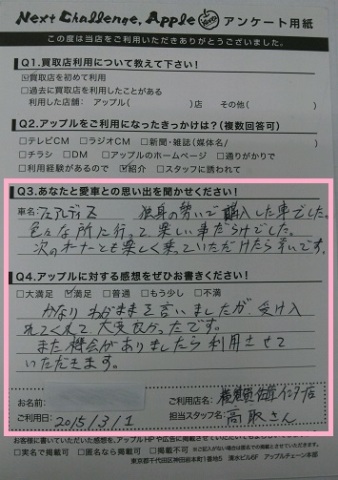 Next Challenge. Apple アンケート用紙
この度は当店をご利用いただきありがとうございました。
Q1.買取店利用について教えて下さい!
☑買取店を初めて利用
□過去に買取店を利用したことがある
利用した店舗: アップル( )店 その他( )
Q2.アップルをご利用になったきっかけは?(複数回答可)
□テレビCM □ラジオCM □新聞・雑誌(媒体名/ )
□チラシ □DM □アップルのホームページ □通りがかりで
□利用経験があるので ☑紹介 □スタッフに誘われて
Q3.あなたと愛車との思い出を聞かせください!
車名: フェアレディZ 独身の勢いで購入した車でした。
色々な所に行って楽しい事だらけでした。
次のオーナーとも楽しく乗っていただけたら幸いです。
Q4.アップルに対する感想をぜひお書きください!
□大満足 ☑満足 □普通 □もう少し □不満
かなりわがままを言いましたが、受け入
れてくれて大変良かったです。
また機会がありましたら利用させて
いただきます。
お名前:
ご利用店名: インター店
ご利用日: 2015/3/1 担当スタッフ名: 高取さん
お客様に書いていただいた感想を、アップルHPや広告に掲載させていただきますことをご了承ください。
□実名で掲載可 □匿名なら掲載可 □掲載不可
東京都千代田区神田岩本町1番地5 清水ビル6F アップルチェーン本部